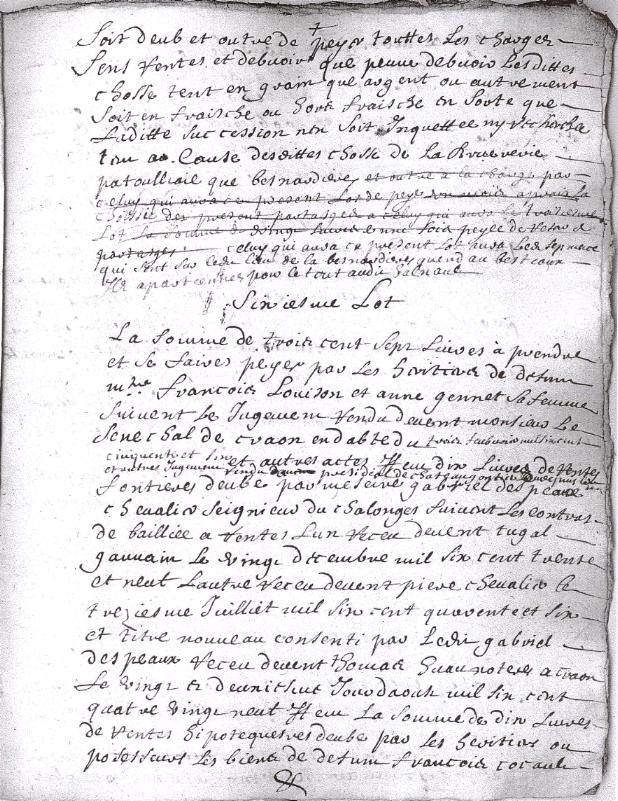 Soit deub et outre de peyer touttes les charges
sens ventes et debvoir que peuve debvoir lesdittes
chosse tent en grain que argent ou autrement
soit en fraische ou hors fraische en sorte que
laditte succession nen soit Inquettee ny recherchee
a cause desdittes chosse de la
patoulliaie que besnardieres et outre a la charge par
celuy qui aura ce present Lot de peyer
des present partages a celuy qui aura le
Lot la somme de vingt Livres
partages celuy qui aura ce present Lot aura les semance
qui sont sur ledit lieu de la besnardieres quend au bestiaux
Ils apartientnes pour le tout audit
Sixiesme Lot
La somme de trois cent sept Livres à prendre
et se faires peyer par les heritiers de defunt
m.tre Francois Louison et anne gennet sa femme
suivent le Jugement rendu devent monsieur le
senechal de craon en dabte du
cinquente et six
et autres Jugement rendu presidial de chateaugontier
et autres actes Item dix Livres de rentes
fontieres deube par messire gabriel des peaux
chevalier seigneur du chalonges suivent les contras
de baillee a rentes Lun receu devent tugal
gauvain le vingt decembre mil six cent trente
et neuf Lautre receu devent piere chevalier le
treziesme Juilliet mil six cent quarente et six
et titre nouveau consenti par ledit gabriel
des peaux receu devent thomas huau notere a craon
le vingt et deuxiesme Jour daoust mil six cent
quatre vingt neuf Item La somme de dix Livres
de rentes hipotequeres deube par les heritiers ou
posesseurs les biens de defunt francois cocault